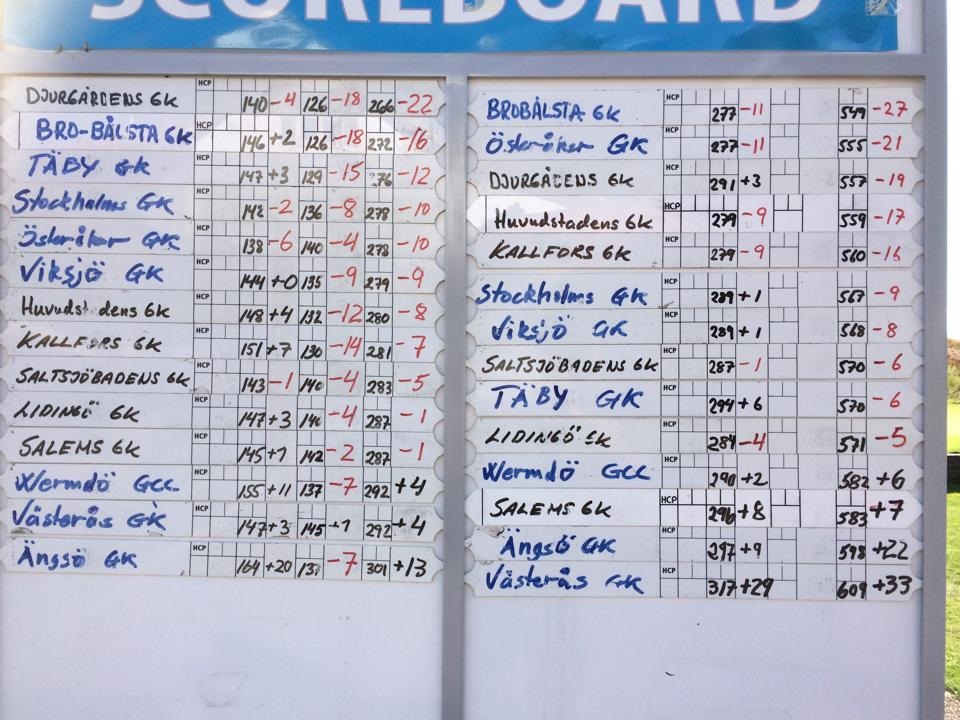 SCOREBOARD
DJURGÅRDENS GK HCP 140 -4 126 -18 266 -22
BRO-BÅLSTA GK HCP 146 +2 126 -18 272 -16
TÄBY GK HCP 147 +3 129 -15 76 -12
Stockholms GK HCP 142 -2 136 -8 278 -10
Österåker GK HCP 138 -6 140 -4 278 -10
Viksjö GK HCP 144 +0 135 -9 279 -9
Huvudst dens GK HCP 148 +4 132 -12 280 -8
KALLFORS GK HCP 151 +7 130 -14 281 -7
SALTSJÖBADENS GK HCP 143 -1 140 -4 283 -5
LIDINGÖ GK HCP 147 +3 140 -4 287 -1
SALEMS GK HCP 145 +1 142 -2 287 -1
Wermdö GCC HCP 155 +11 137 -7 292 +4
Västerås GK HCP 147 +3 145 +1 292 +4
Ängsö GK HCP 164 +20 137 -7 301 +13
BROBÅLSTA GK HCP 277 -11 549 -27
Österåker GK HCP 277 -11 555 -21
DJURGÅDENS GK HCP 291 +3 557 -19
Huvudstadens GK HCP 279 -9 559 -17
KALLFORS GK HCP 279 -9 560 -16
Stockholms GK HCP 289 +1 567 -9
Viksjö GK HCP 289 +1 568 -8
SALTSJÖBADENS GK HCP 287 -1 570 -6
TÄBY GK HCP 294 +6 570 -6
LIDINGÖ GK HCP 284 -4 571 -5
Wermdö GCC HCP 290 +2 582 +6
SALEMS GK HCP 296 +8 583 +7
Ängsö GK HCP 297 +9 598 +22
Västerås GK HCP 317 +29 609 +33